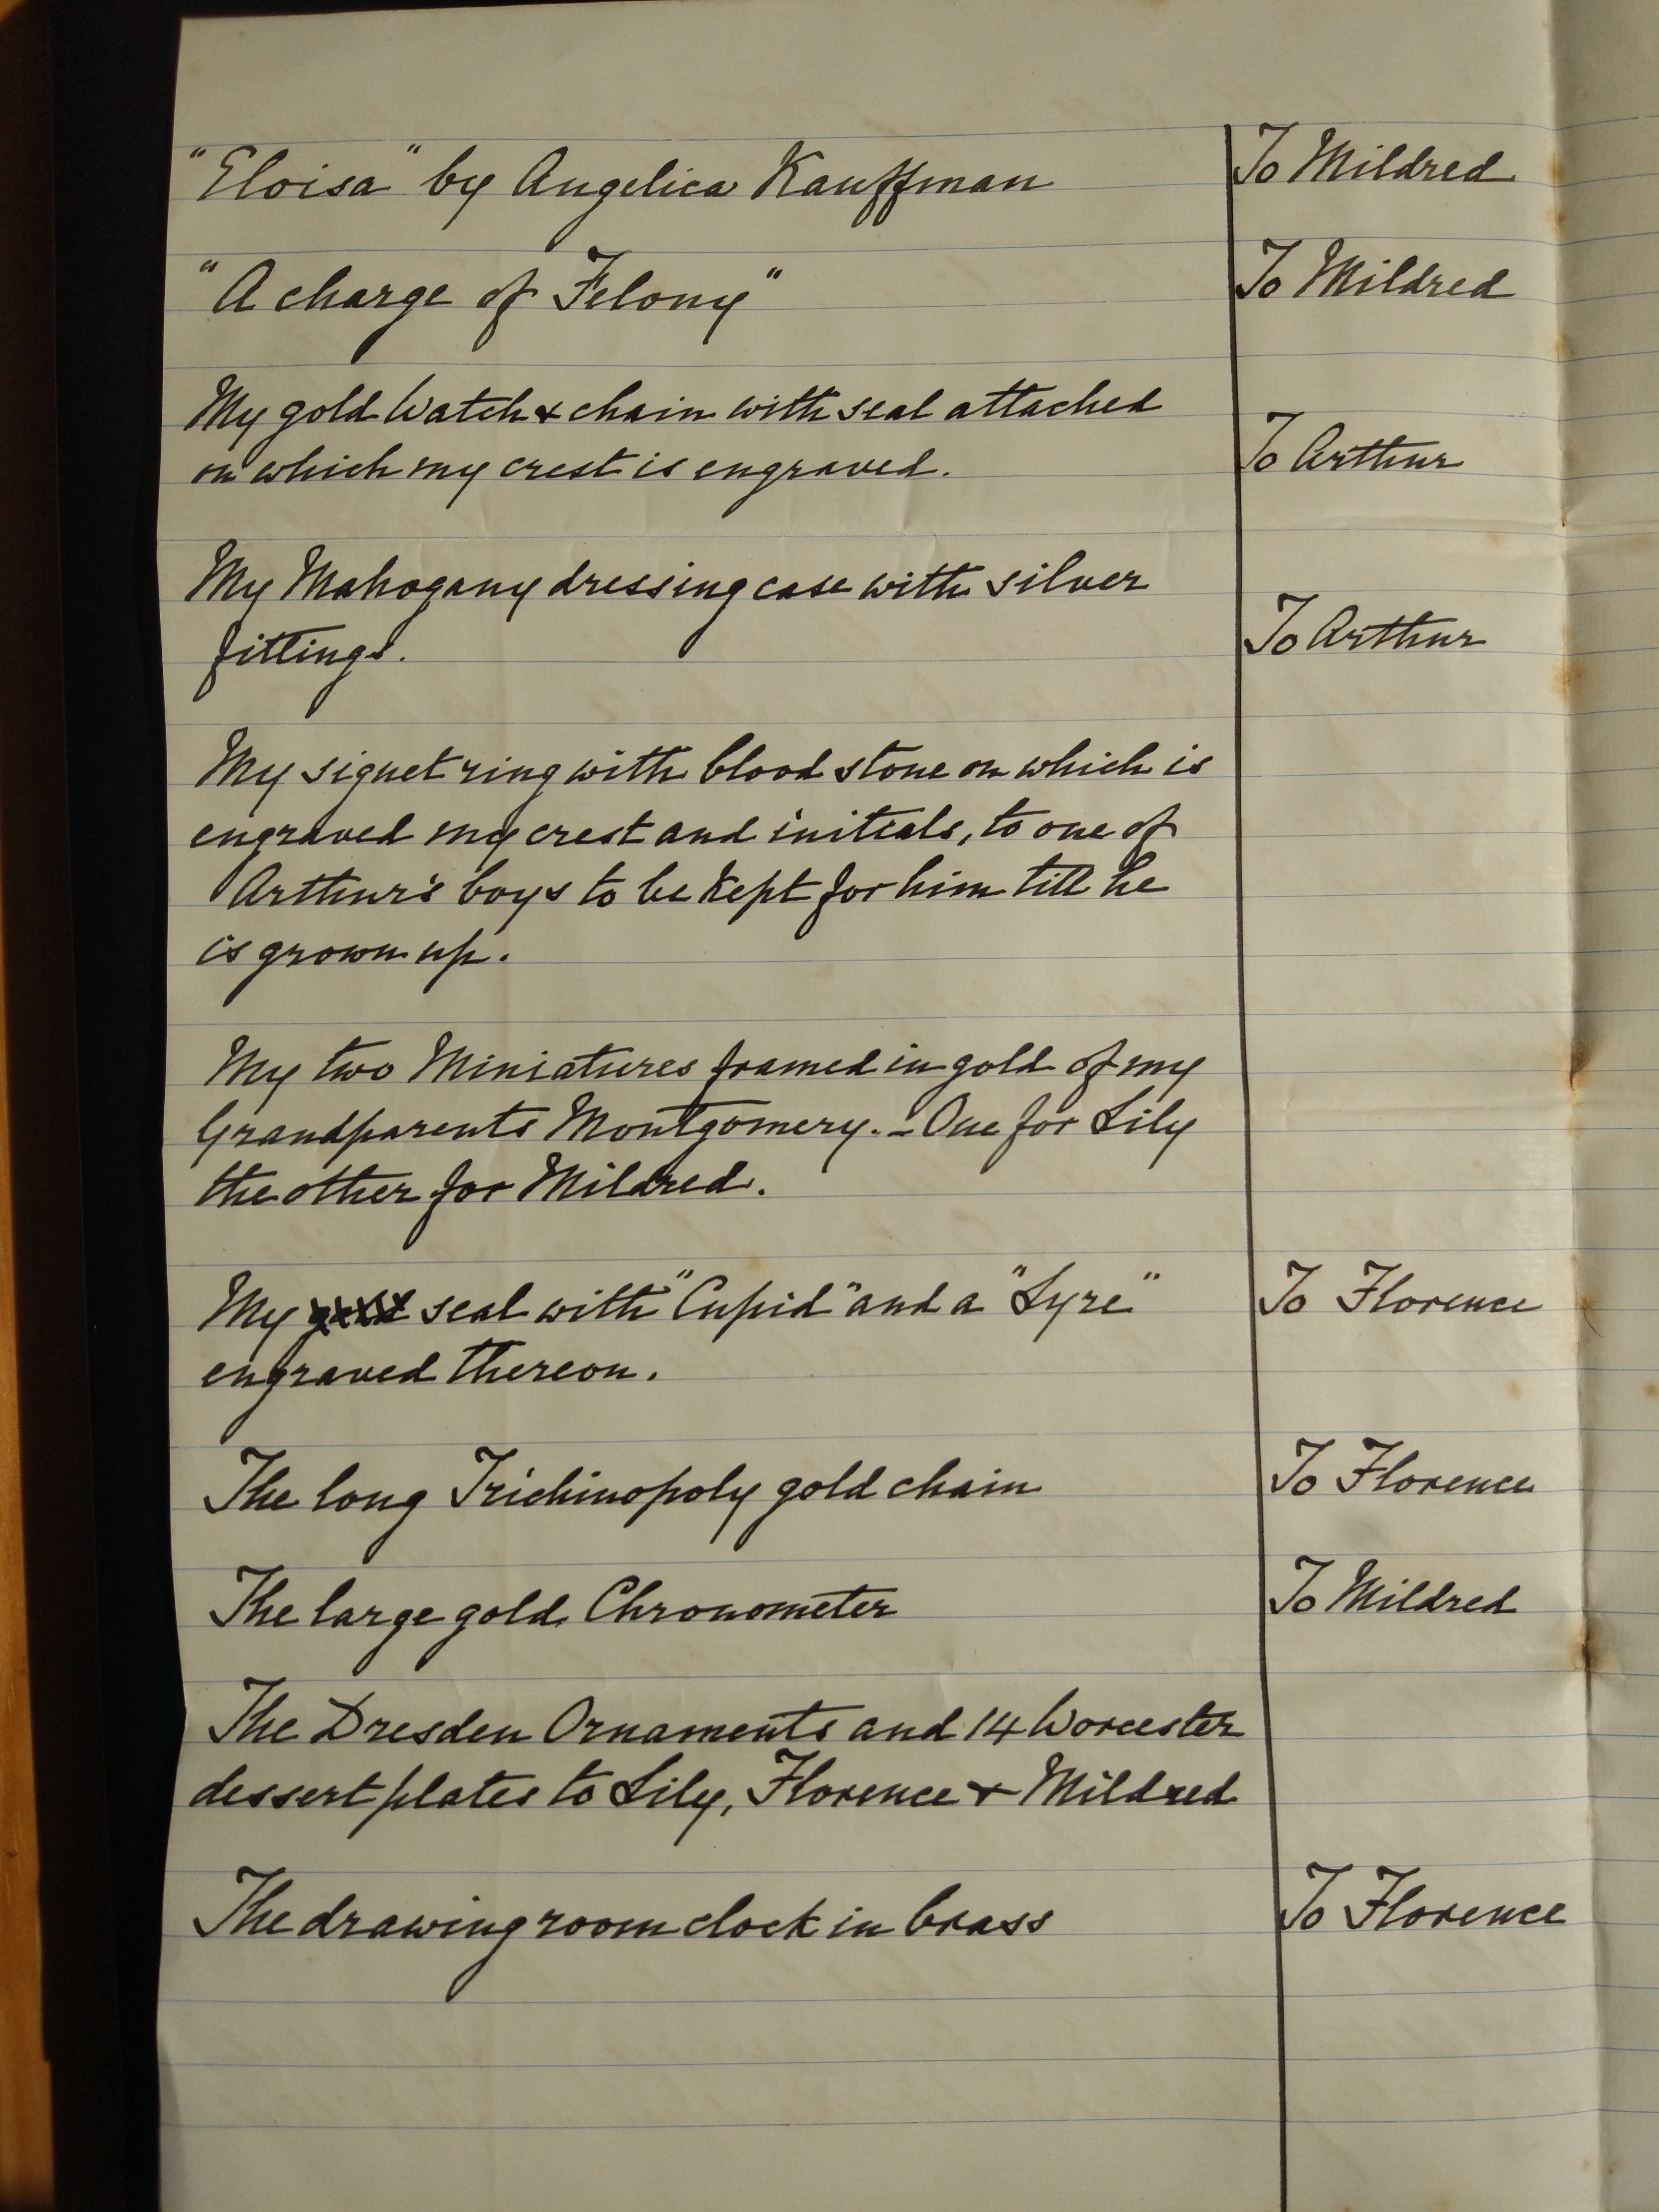 "Eloisa" by Angelica Kauffman To Mildred
"A charge of Felony" To Mildred
My gold Watch & chain with seal attached
on which my crest is engraved. To Arthur
My Mahogany dressing case with silver
fittings. To Arthur
My signet ring with blood stone on which is
engraved my crest and initials, to one of
Arthur's boys to be kept for him till he
is grown up.
My two Miniatures framed in gold of my
Grandparents Montgomery. - One for Lily
the other for Mildred.
My seal with "Cupid" and a "Lyre" To Florence
engraved thereon.
The long Trichinopoly gold chain To Florence
The large gold Chronometer To Mildred
The Dresden Ornaments and 14 Worcester
dessert plates to Lily, Florence & Mildred
The drawing room clock in brass To Florence